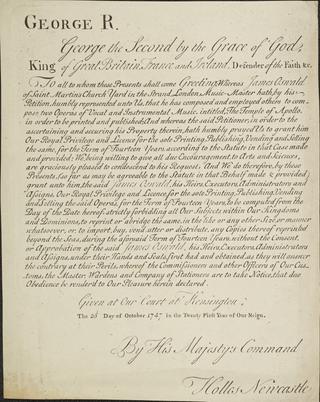 GEORGE R.
George the Second by the Grace of God,
King of Great Britain, France and Ireland, Defender of the Faith &c.
To all to whom these Presents shall come Greeting, Whereas James Oswald
of Saint Martins Church Yard in the Strand London, Music-Master hath, by his
Petition, humbly represented unto Us, that he has composed and employed others to com-
pose, two Operas of Vocal and Instrumental Music, entitled The Temple of Apollo,
in order to be printed and published; And whereas the said Petitioner, in order to the
ascertaining and securing his Property therein, hath humbly pray'd Us to grant him
Our Royal Privilege and Licence for the sole Printing, Publishing, Vending and Selling
the same, for the Term of Fourteen Years, according to the Statute in that Case made
and provided; We being willing to give all due Encouragement to Arts and Sciences,
are graciously pleas'd to condescend to his Request. And We do therefore, by these
Presents, so far as may be agreeable to the Statute in that Behalf made & provided
grant unto him, the said James Oswald, his Heirs, Executors, Administrators and
Assigns, Our Royal Privilege and Licence for the sole Printing, Publishing, Vending
and Selling the said Operas, for the Term of Fourteen Years, to be computed from the
Day of the Date hereof, strictly forbidding all Our Subjects within Our Kingdoms
and Dominions, to reprint or abridge the same, in the like or any other Size, or manner
whatsoever, or, to import, buy, vend, utter or distribute, any Copies thereof reprinted
beyond the Seas, during the aforesaid Term of Fourteen Years, without the Consent
or Approbation of the said James Oswald, his Heirs, Executors, Administrators
and Assigns, under their Hands and Seals, first had and obtained, as they will answer
the contrary at their Perils, whereof the Commissioners and other Officers of Our Cus-
toms, the Master Wardens and Company of Stationers are to take Notice, that due
Obedience be render'd to Our Pleasure herein declared.
Given at Our Court at Kensington;
The 23 Day of October 1747 in the Twenty First Year of Our Reign.
By His Majestys Command
Holles Newcastle